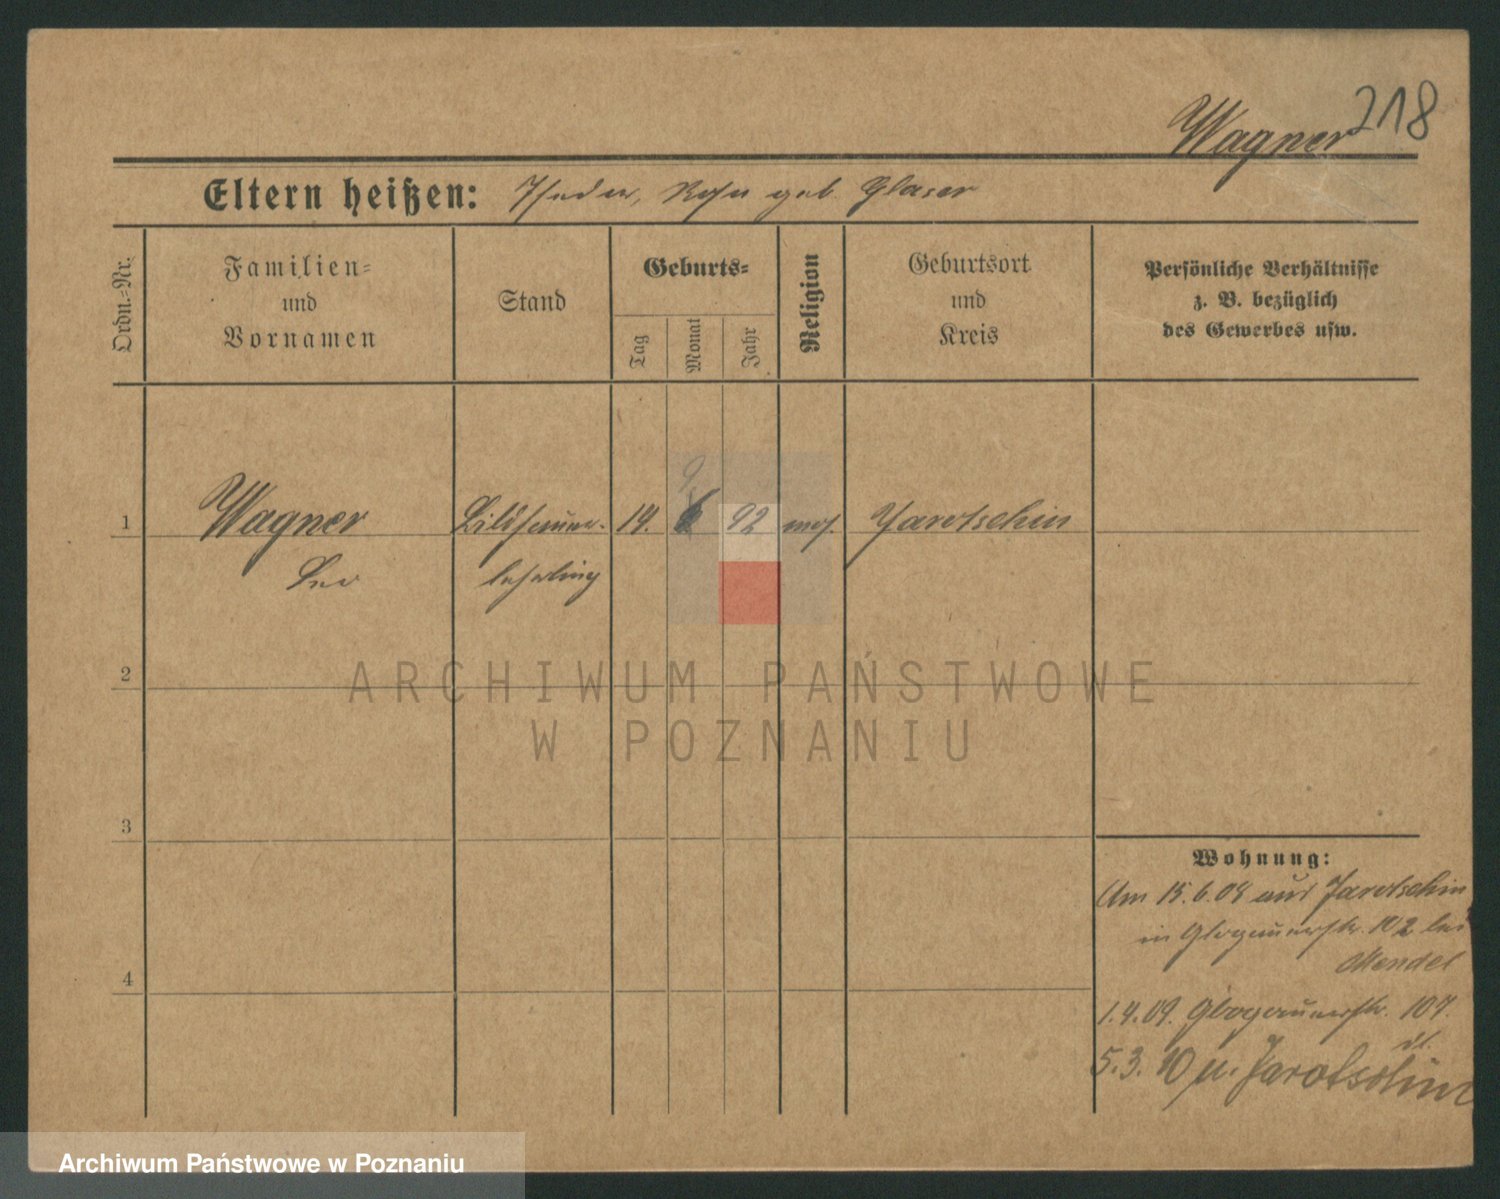 218
Wagner
Eltern heißen: Isidor, Rosa geb. Glaser
Ordn.-Nr.
Familien-
und
Vornamen
Stand
Geburts-
Tag
Monat
Jahr
Religion
Geburtsort
und
Kreis
Persönliche Verhältnisse
z. B. bezüglich
des Gewerbes usw.
9
1 Wagner Bildhauer- 14. 92 mos. Jarotschin
Leo lehrling
ARCHIWUM PAŃSTWOWE
W POZNANIU
2
3
4
Wohnung:
Am 15.6.08 aus Jarotschin
in Glogauerstr. 102 bei
Mendel
1.4.09. Glogauerstr. 107.
5.3.10 n. Jarotschin
Archiwum Państwowe w Poznaniu